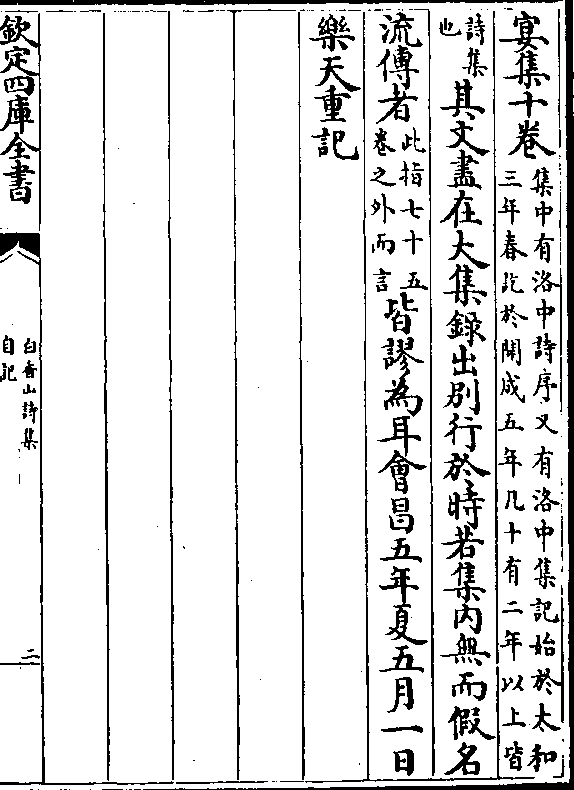 宴集十卷集中有洛中詩序又有洛中集記始於太和三年春訖於開成五年凡十有二年以上皆
詩集也其文盡在大集錄出別行於時若集内無而假名
流傳者此指七十五卷之外而言皆謬為耳會昌五年夏五月一日
樂天重記
欽定四庫全書
白香山詩集
自記
二